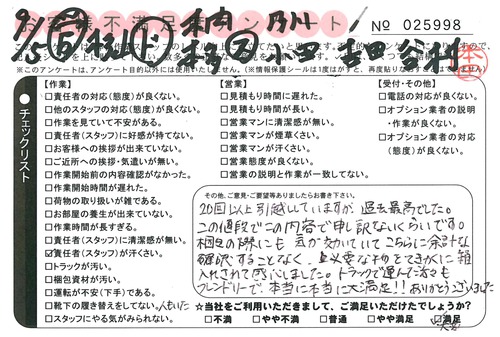 お客様不満足度アンケート! No 025998
9/15
※このアンケートは、アンケート目的以外には使用いたしません。
チェックリスト
【作業】
□責任者の対応(態度)が良くない。
□他のスタッフの対応(態度)が良くない。
□作業を見ていて不安がある。
□責任者(スタッフ)に好感が持てない。
□お客様への挨拶が出来ていない。
□ご近所への挨拶・気遣いが無い。
□作業開始前の内容確認がなかった。
□作業開始時間が遅れた。
□荷物の取り扱いが雑である。
□お部屋の養生が出来ていない。
□作業時間が長すぎる。
□責任者(スタッフ)に清潔感が無い。
☑責任者(スタッフ)が汗くさい。
□トラックが汚い。
□梱包資材が汚い。
□運転が不安(下手)である。
□靴下の履き替えをしてない。人もいた
□スタッフにやる気がみられない。
【営業】
□見積もり時間に遅れた。
□見積もり時間が長い。
□営業マンに清潔感が無い。
□営業マンが煙草くさい。
□営業マンが汗くさい。
□営業態度が良くない。
□営業の説明と作業が一致してない。
【受付・その他】
□電話の対応が良くない。
□オプション業者の説明
・作業が良くない。
□オプション業者の対応
(態度)が良くない。
その他、ご意見・ご要望等ありましたらお書き下さい。
20回以上引越ししていますが、過去最高でした。
この値段でこの内容で申し訳ないくらいです。
梱包の際にも気が効いていてこちらに余計な
確認することなく、大変な物もてきぱきに箱
入れされて感心しました。トラックで運んだ方も
フレンドリーで、本当に本当に大満足!!ありがとうございました
☆当社をご利用いただきまして、ご満足いただけたでしょうか?
□不満 □やや不満 □普通 □やや満足 □満足